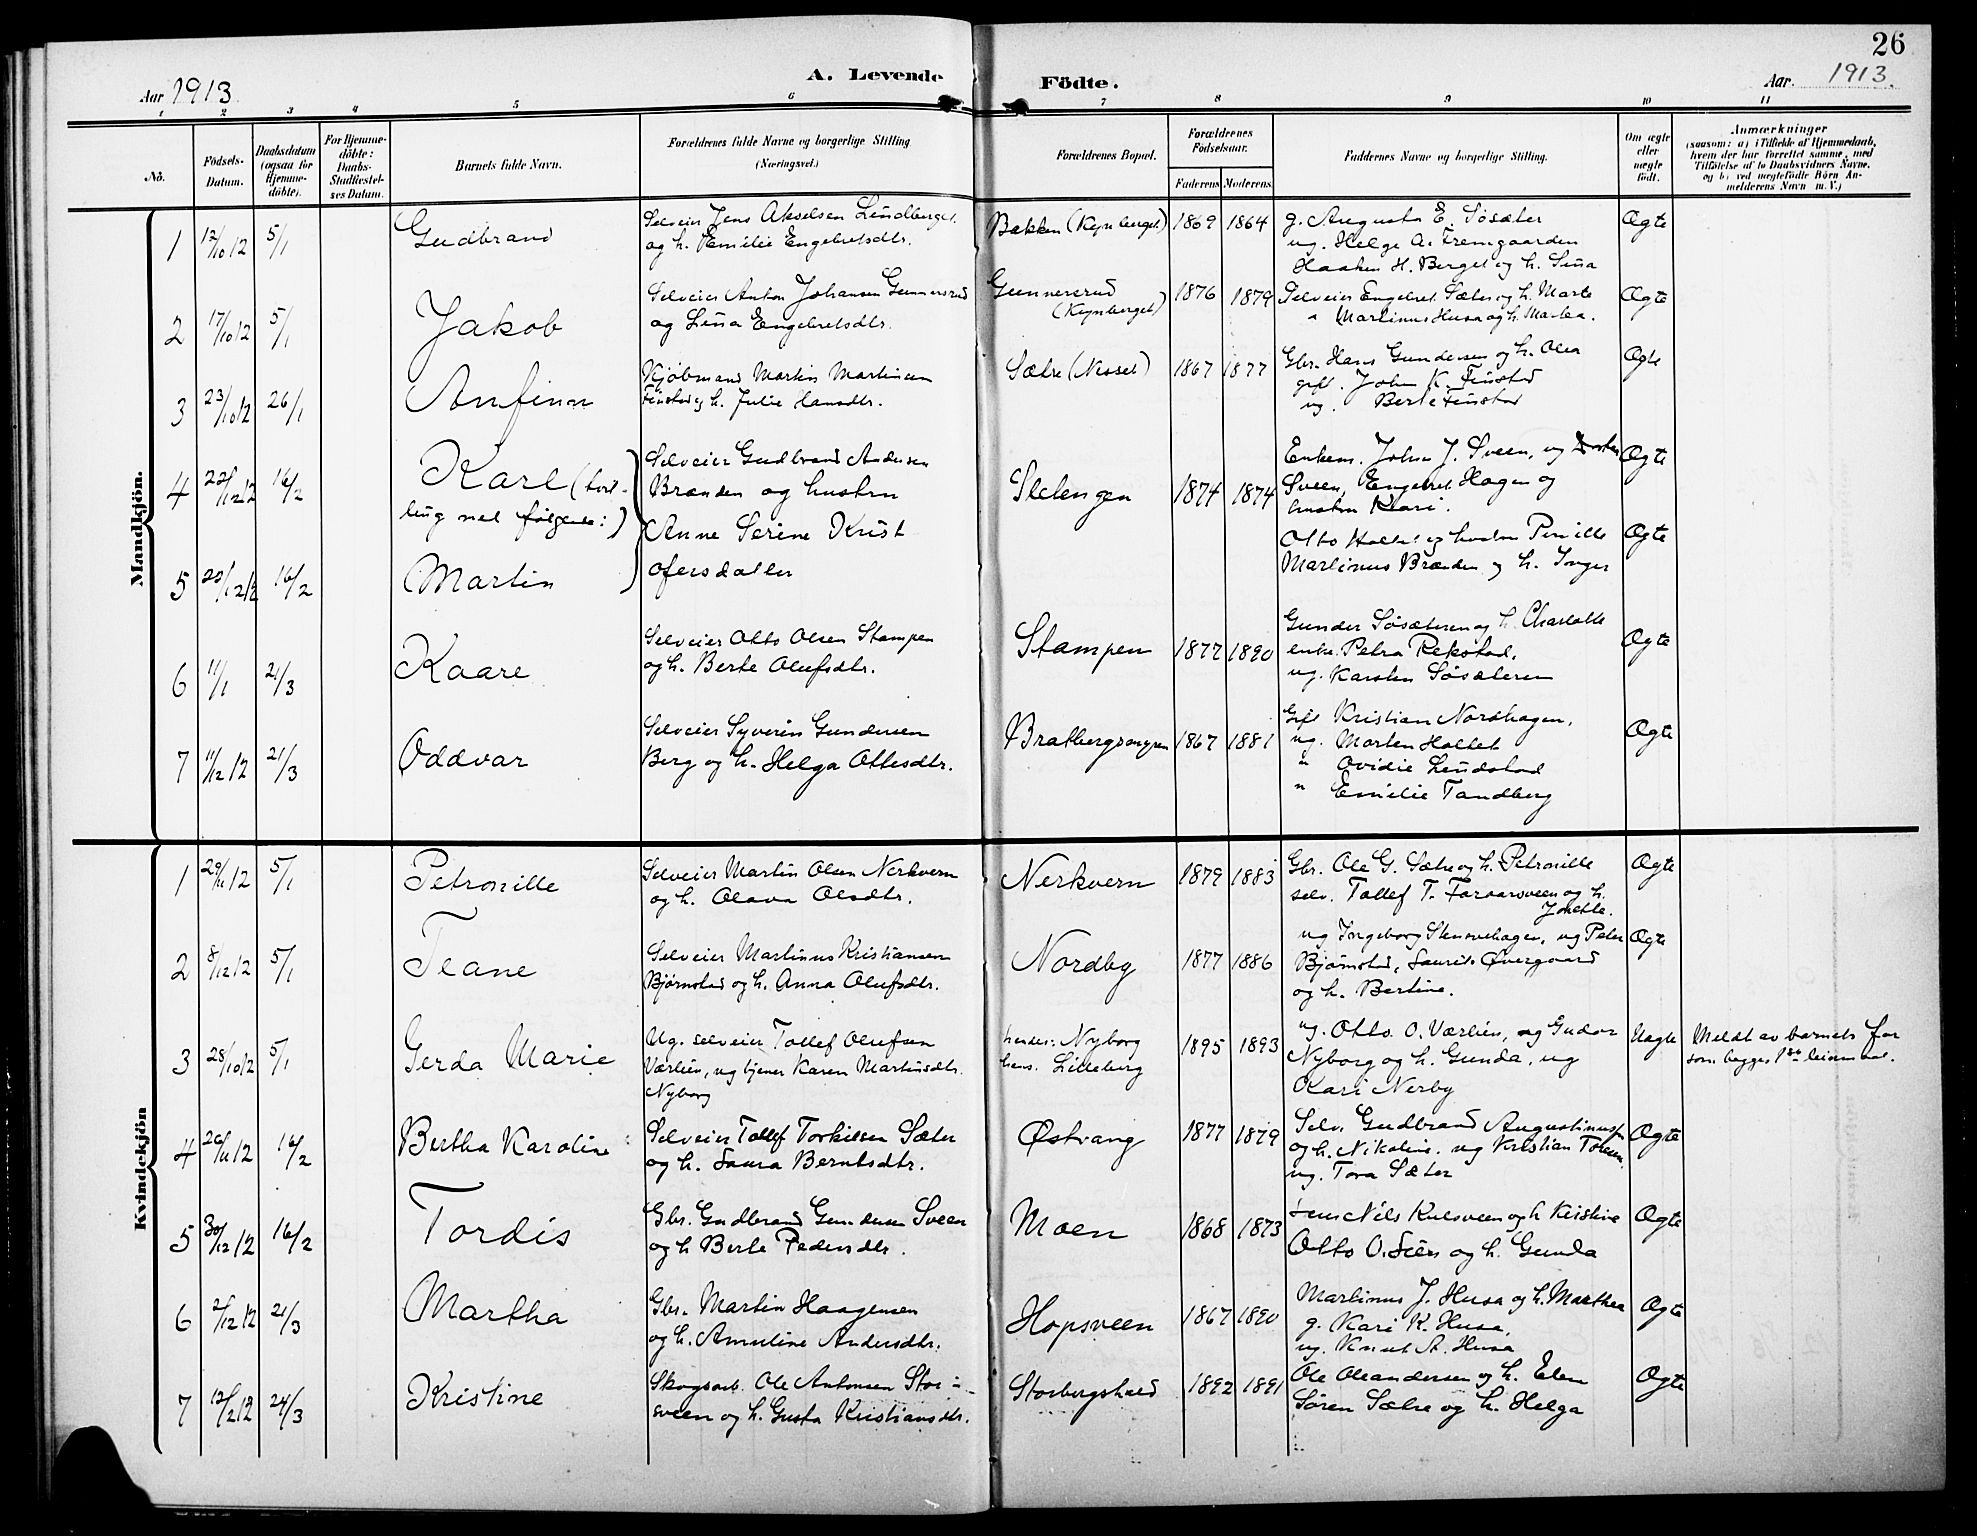 26
A. Levende Födte.
Aar 1913.
Aar. 1913.
1 2 3 4 5 6 7 8 9 10 11
No.
Födsels-
Datum.
Daabsdatum
(ogsaa for
Hjemme-
döbte).
For Hjemme-
döbte:
Daabs-
Stadfæstel-
ses Datum.
Barnets fulde Navn.
Forældrenes fulde Navne og borgerlige Stilling
(Næringsvei.)
Forældrenes Bopæl.
Forældrenes
Födselsaar.
Faderens Moderens
Faddernes Navne og borgerlige Stilling.
Om ægte
eller
uægte
født.
Anmærkninger
(saasom: a) i Tilfælde af Hjemmedaab,
hvem der har forrettet samme, med
Tilföielse af to Daabsvidners Navne.
og b) ved uægtefödte Börn An-
melderens Navn m. V.)
Mandkjön.
1 12/10 12 5/1 Gudbrand
Selveier Jens Akselsen Lundberget
og h. Emilie Engebretsdtr.
Bakken (Kynberget) 1869 1864
g. Augusta E. Søsæter
ug. Helge A. Fremgaarden
Haaken H. Berget og h. Sina
Ægte
2 17/10 12 5/1 Jakob
Selveier Anton Johansen Gunnersrud
og Lina Engebretsdtr.
Gunnersrud
(Kynberget) 1876 1879
Selveier Engebret Sæter og h. Marte
" Martinus Husa og h. Martea.
Ægte
3 23/10 12 26/1 Anfinn
Kjøbmand Martin Martinsen
Finstad og h. Julie Hansdtr.
Sætre (Nesset) 1867 1877
Gbr. Hans Gundersen og h. Olea
gift. John K. Finstad
ug. Berte Finstad
Ægte
4 22/12 12 16/2 Karl (tvil-
ling med følgende:)
Selveier Gudbrand Andersen
Brænden og hustru
Anne Serine Krist
ofersdatter
Stetengen 1874 1874
Enkem. John J. Sveen, ug
Sveen, Engebret Hagen og
hustru Kari.
Ægte
5 22/12 12 16/2 Martin
Otto Haltet og hustru Pernille
Martinus Brænden og h. Inger
Ægte
6 11/1 21/3 Kaare
Selveier Otto Olsen Stampen
og h. Berte Olufsdtr.
Stampen 1877 1890
Gunder Søsæteren og h. Charlotte
enke. Petra Rekstad,
ug. Karsten Søsæteren
Ægte
7 11/12 12 21/3 Oddvar
Selveier Syverin Gundersen
Berg og h. Helga Ottesdtr.
Bratbergsengen 1867 1881
Gift Kristian Nordhagen,
ug. Morten Haltet
" Ovidie Lundstad
" Emilie Tandberg
Ægte
Kvindekjön
1 29/11 12 5/1 Petronille
Selveier Martin Olsen Nerkvern
og h. Olava Olsdtr.
Nerkvern 1879 1883
Gbr. Ole G. Sætre og h. Petronille
selv. Tollef T. Foraarsveen og h.
Jonette.
Ægte
2 8/12 12 5/1 Teane
Selveier Martinus Kristiansen
Bjørnstad og h. Anna Olufsdtr.
Nordby 1877 1886
ug Ingeborg Stensvehagen, ug Peter
Bjørnstad, Laurits Øvergaard
og h. Bertine.
Ægte
3 25/10 12 5/1 Gerda Marie
Ug. selveier Tollef Olufsen
Værlien, ug tjener Karen Martinsdtr.
Nyborg
hendes: Nyborg
hans. Lilleberg 1895 1893
ug. Otto O. Værlien, ug Gudor
Nyborg og h. Gunda, ug
Kari Nerby
Uægte
Meldt av barnets far
som begges 1ste leiermaal.
4 26/11 12 16/2 Bertha Karoline
Selveier Tollef Torkilsen Sæter
og h. Laura Berntsdtr.
Østvang 1877 1879
Selv. Gudbrand Augustinusen
og h. Nikoline. ug Kristian Toreen,
ug. Tora Sæter
Ægte
5 30/12 12 16/2 Tordis
Gbr. Gudbrand Gundersen Sveen
og h Berte Pedersdtr.
Moen 1868 1873
Nils Kulsveen og h Kristine
Otto O. Lien og h. Gunda
Ægte
6 2/12 12 21/3 Martha
Gbr. Martin Haagensen
og h. Amuline Andersdtr.
Hopsveen 1867 1890
Martinus J. Husa og h. Marthea
g. Kari K. Husa,
ug. Knut A. Husa
Ægte
7 12/2 12 24/3 Kristine
Skogsarb. Ole Antonsen Stor-
sveen og h. Gusta Kristiansdtr.
Storbergshaed 1892 1891
Ole Oleandersen og h. Elen
Søren Sætre og h. Helga
Ægte